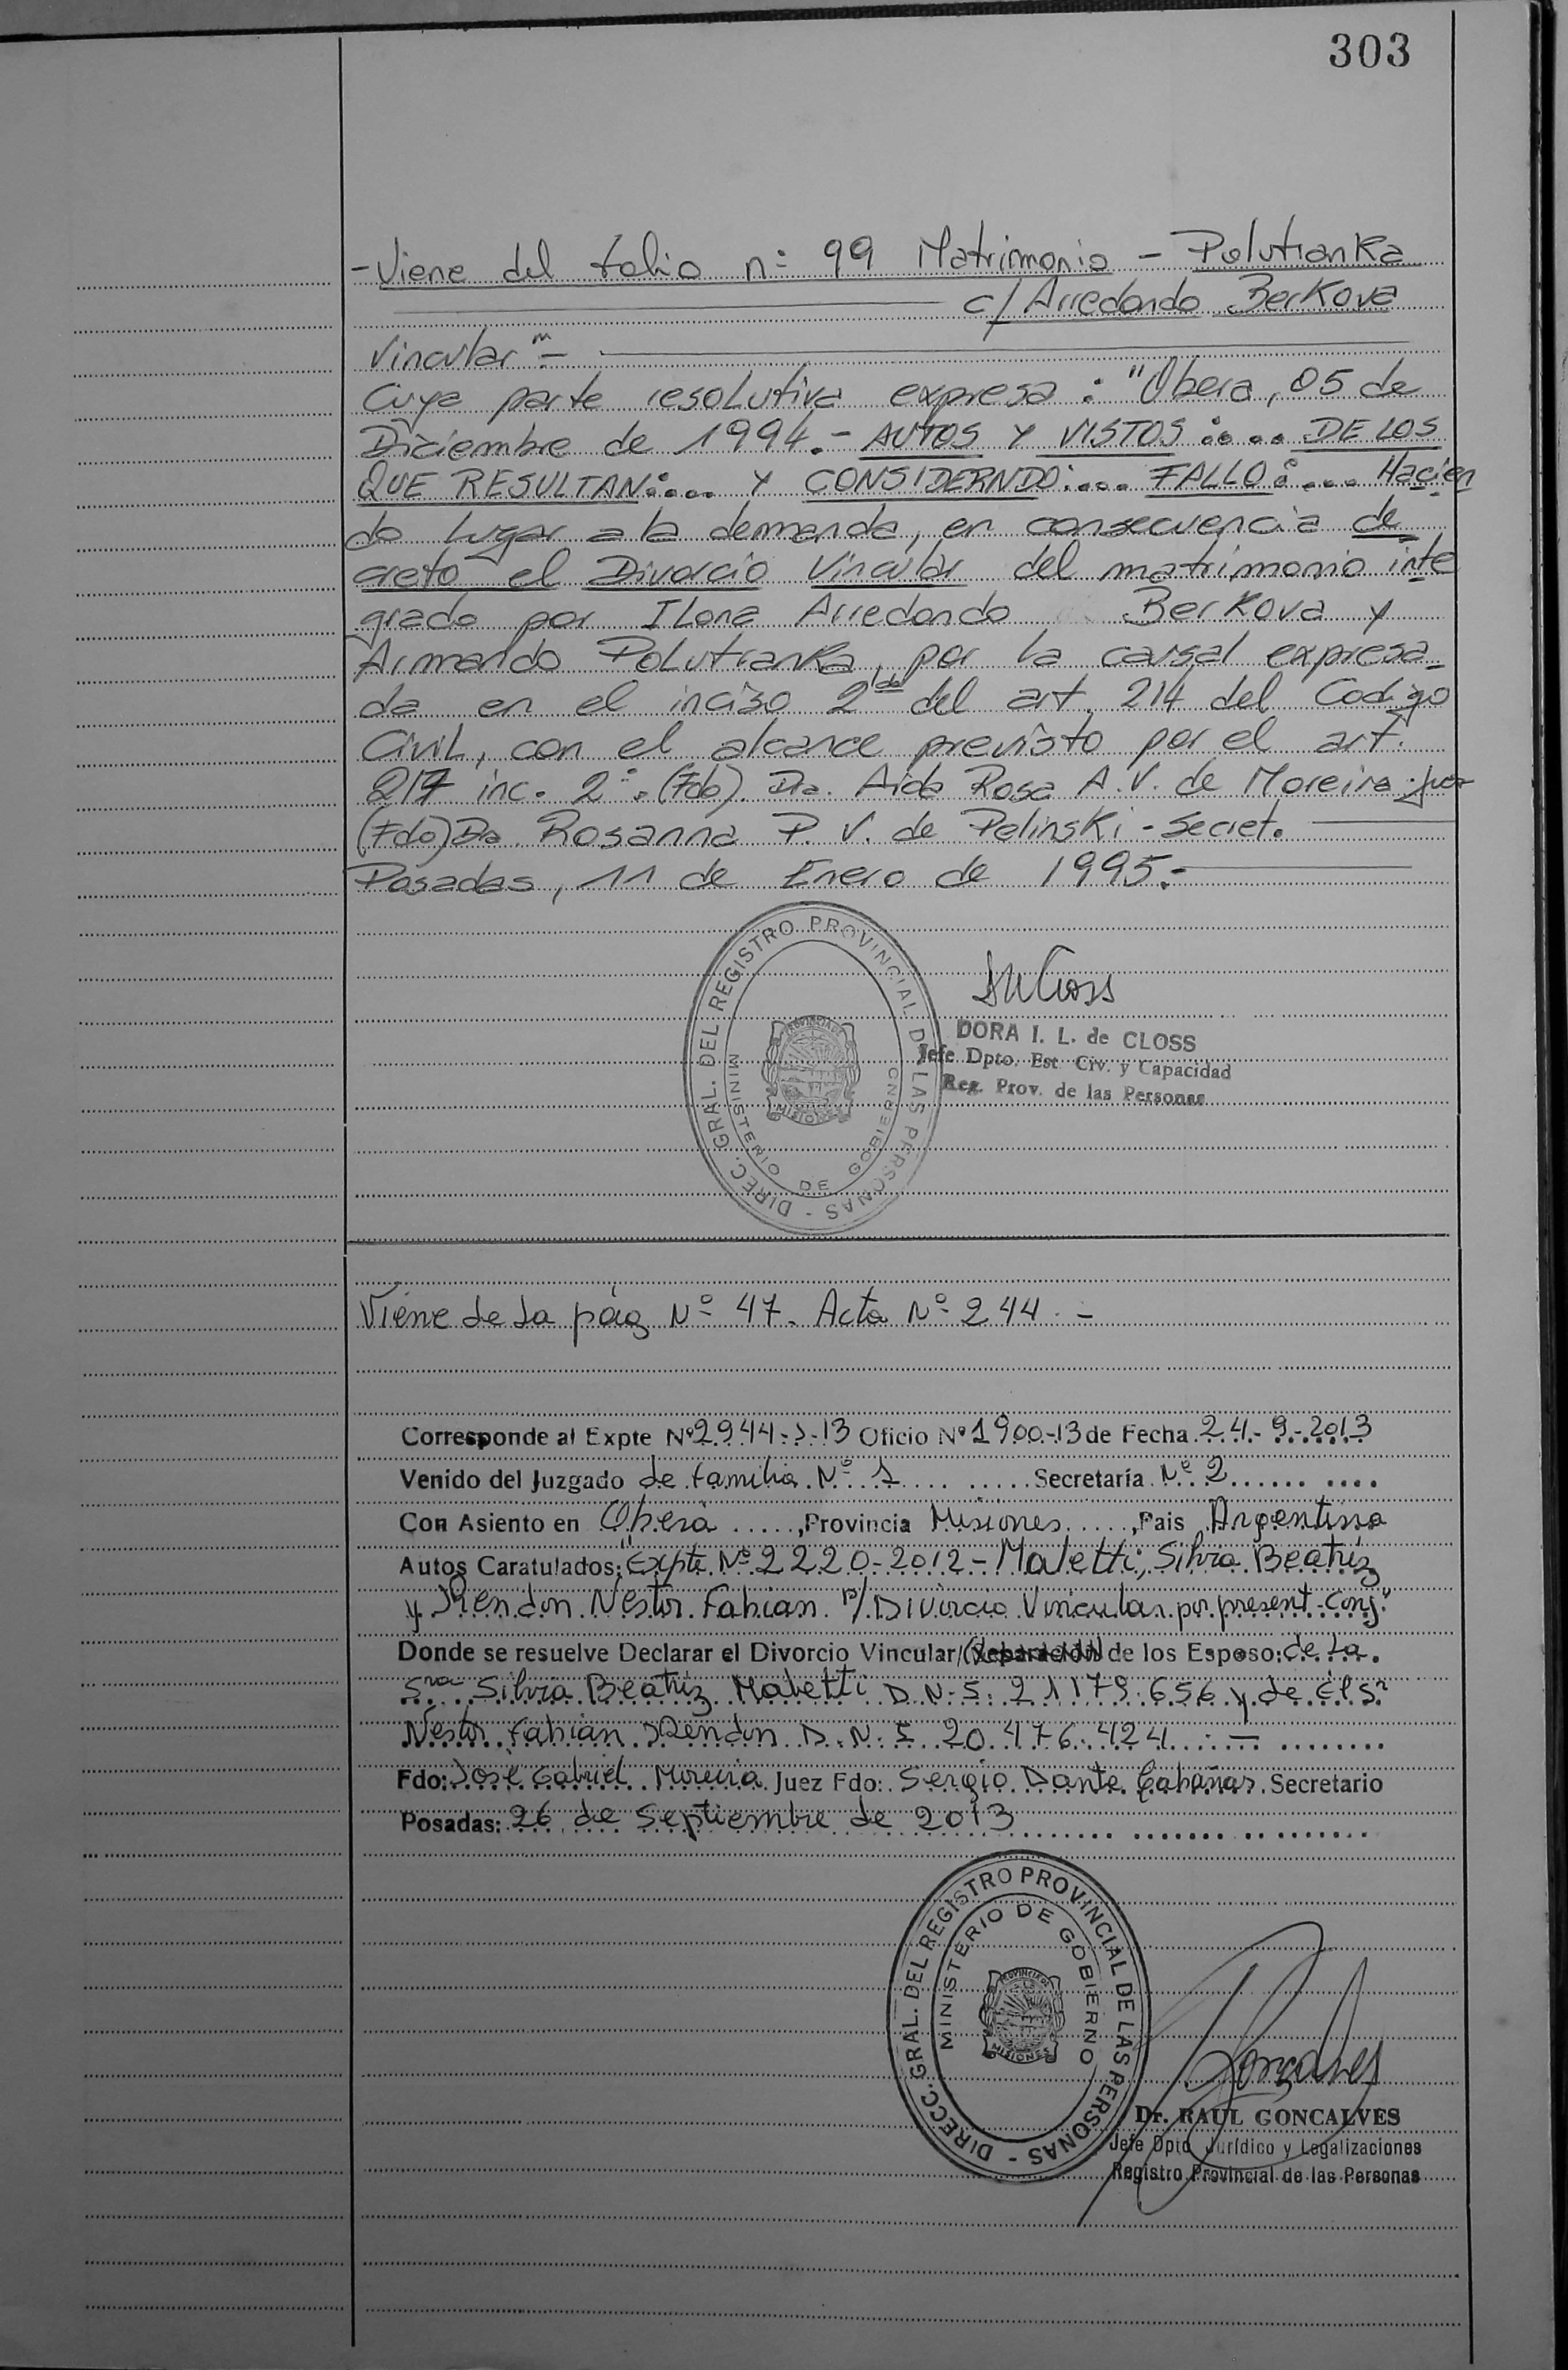 303
- Viene del folio n° 99 Matrimonio - Polutranka
c/ Arredondo Berkova
Vincular" -
Cuya parte resolutiva expresa: "Obera, 05 de
Diciembre de 1994.- AUTOS Y VISTOS:.... DE LOS
QUE RESULTAN:.... Y CONSIDERNDO:.... FALLO:.... Hacien
do lugar a la demanda, en consecuencia de
creto el Divorcio Vincular del matrimonio inte
grado por Ilona Arredondo Berkova y
Armando Polutranka, por la causal expresa-
da en el inciso 2do del art. 214 del Codigo
Civil, con el alcance previsto por el art.
217 inc. 2°. (Fdo). Dra. Aida Rosa A. V. de Moreira - Juez
(Fdo) Dra. Rosanna P. V. de Pelinski - Secret.
Posadas, 11 de Enero de 1995.-
DIREC. GRAL. DEL REGISTRO PROVINCIAL DE LAS PERSONAS -
MINISTERIO DE GOBIERNO
PROVINCIA DE
MISIONES
DORA I. L. de CLOSS
Jefe Dpto. Est. Civ. y Capacidad
Reg. Prov. de las Personas
Viene de la pág N° 47. Acta N° 244. -
Corresponde al Expte N° 2944-J-13 Oficio N° 1900-13 de Fecha 24-9-2013
Venido del Juzgado de familia N° 1 Secretaría N° 2
Con Asiento en Oberá, Provincia Misiones, Pais Argentina
Autos Caratulados: "Expte N° 2220-2012 - Maletti, Silvia Beatriz
y Rendon Nestor Fabian p/ Divorcio Vincular por present. Conj."
Donde se resuelve Declarar el Divorcio Vincular/(Separación) de los Esposo: de la
Sra Silvia Beatriz Maletti D.N.I. 21179.656 y de él Sr
Nestor Fabián Rendon D.N.I. 20.476.424. -
Fdo: José Gabriel Moreira Juez Fdo: Sergio Dante Cabañas Secretario
Posadas: 26 de Septiembre de 2013
DIRECC. GRAL. DEL REGISTRO PROVINCIAL DE LAS PERSONAS -
MINISTERIO DE GOBIERNO
PROVINCIA DE
MISIONES
Dr. RAUL GONCALVES
Jefe Dpto Jurídico y Legalizaciones
Registro Provincial de las Personas